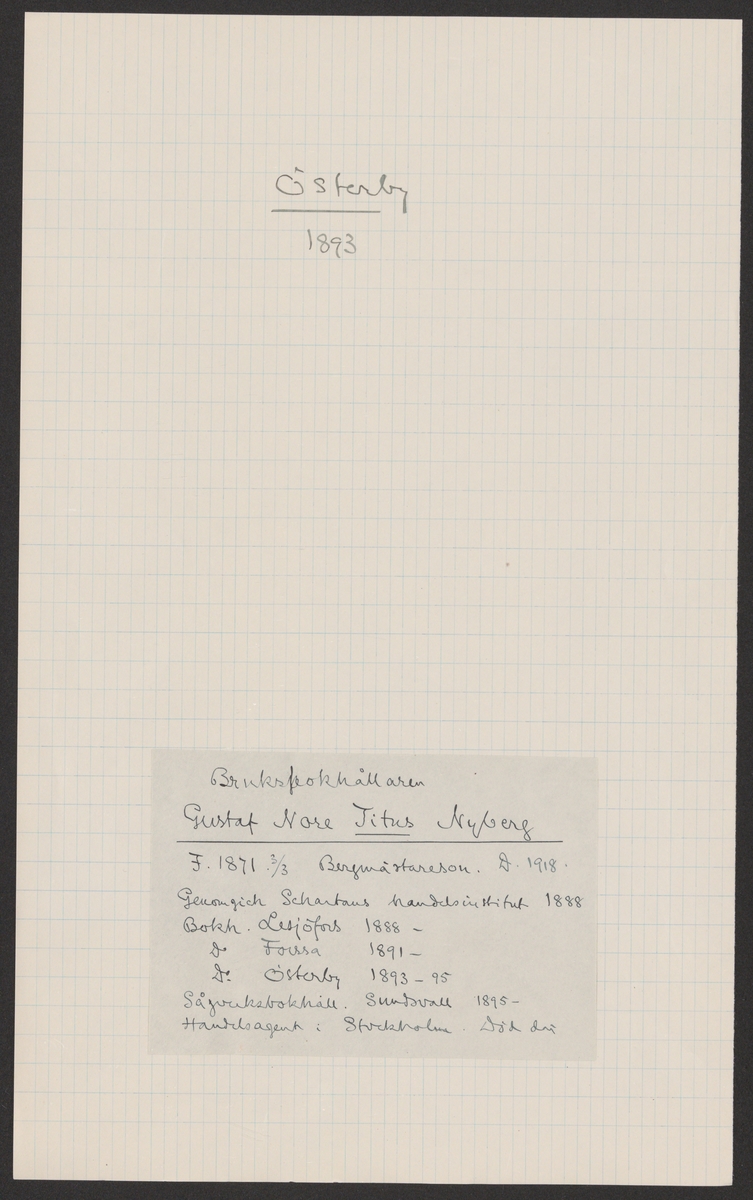 Österby
1893
Bruksbokhållaren
Gustaf Nore Titus Nyberg
F. 1871 3/3 Bergmästareson. D. 1918.
Genomgick Schartaus handelsinstitut 1888
Bokh. Lesjöfors 1888 –
Do Forssa 1891 –
Do Österby 1893 – 95
Sågverksbokhåll. Sundsvall 1895 –
Handelsagent i Stockholm. Död där